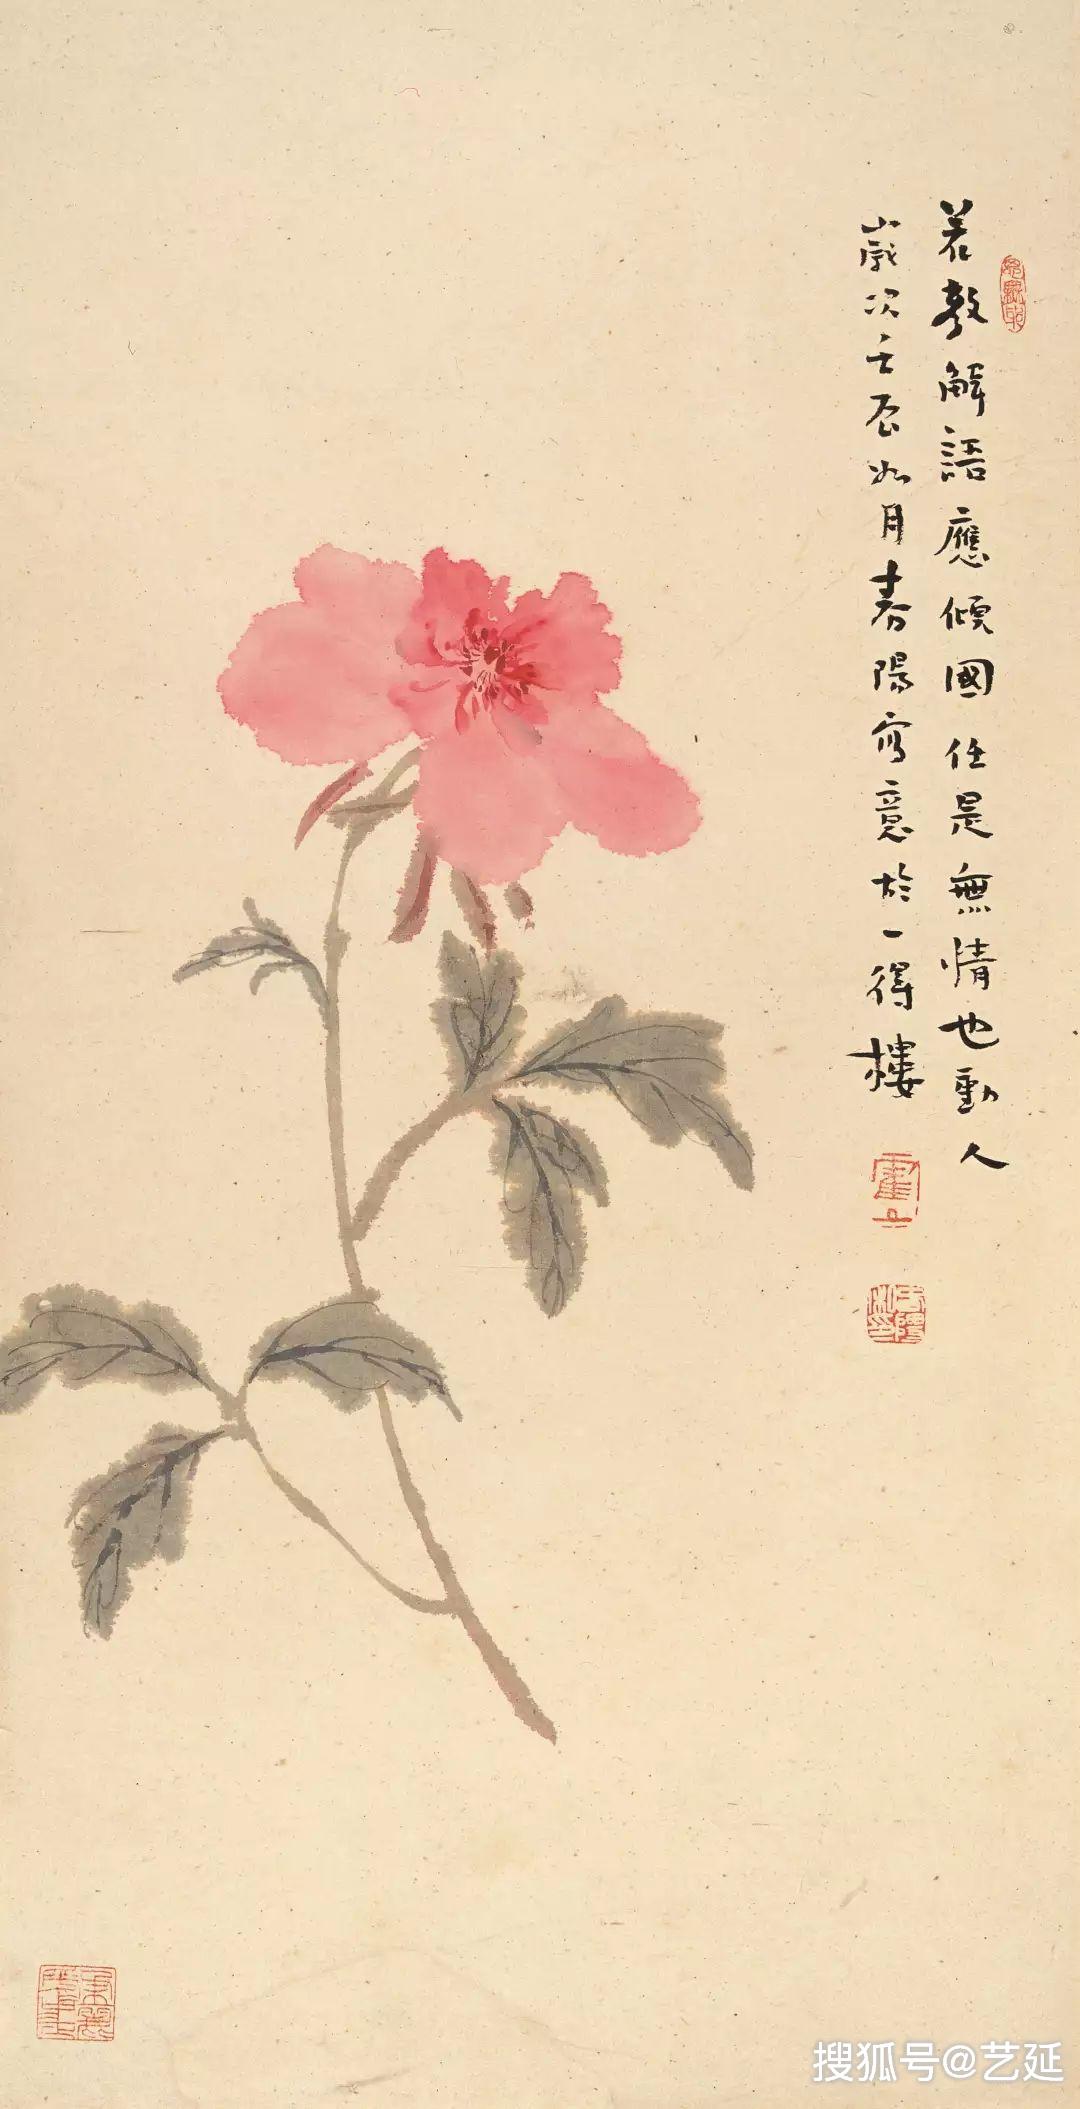 若教解語應傾國任是無情也動人
歲次壬辰如月春陽寫意於一得樓
搜狐号@艺延